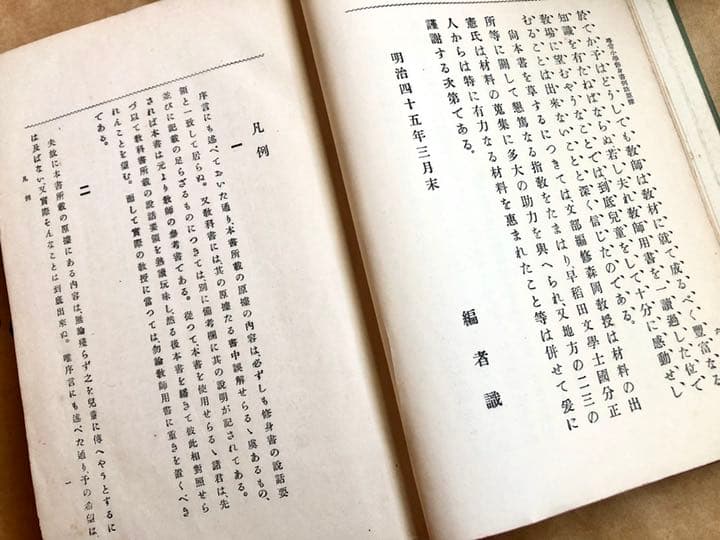 尋常小學修身書例話原據
於て、か予はどうしても、教師は教材に就て成るべく豐富なる
知識を有たねばならぬ、若し夫れ教師用書を一讀過した位で
教場に望むやうなことでは到底兒童をして十分に感動せし
むることは出來ないことと深く信じたのである。
尚本書を草するにつきては、文部編修森岡教授は材料の出
所等に關して懇篤なる指教をたまはり早稻田文學士國分正
憲氏は材料の蒐集に多大の助力を與へられ、又地方の二三の
人からは特に有力なる材料を惠まれたこと等は併せて爰に
謹謝する次第である。
明治四十五年三月末
編者識
凡例
一
序言にも述べておいた通り、本書所載の原據の內容は必ずしも修身書の說話要
領と一致して居らぬ。又教科書には、其の原據たる書中誤解せらるゝ虞あるもの、
並びに記載の足らざるものにつきては、別に備考欄に其の說明が記されてある。
されば本書は元より教師の參考書である。從つて、本書を使用せらるゝ諸君は、先
づ以て教科書所載の說話要領を熟讀玩味し、然る後本書を繙きて彼此相對照せら
れんことを望む。而して實際の教授に當つては、勿論教師用書に重きを置くべき
である。
二
夫故に本書所載の原據にある內容は、無論殘らず之を兒童に傳へやうとするに
は及ばない、又實際そんなことは到底出來ぬ。唯序言にも述べた通り、予の希望は、
凡例
一